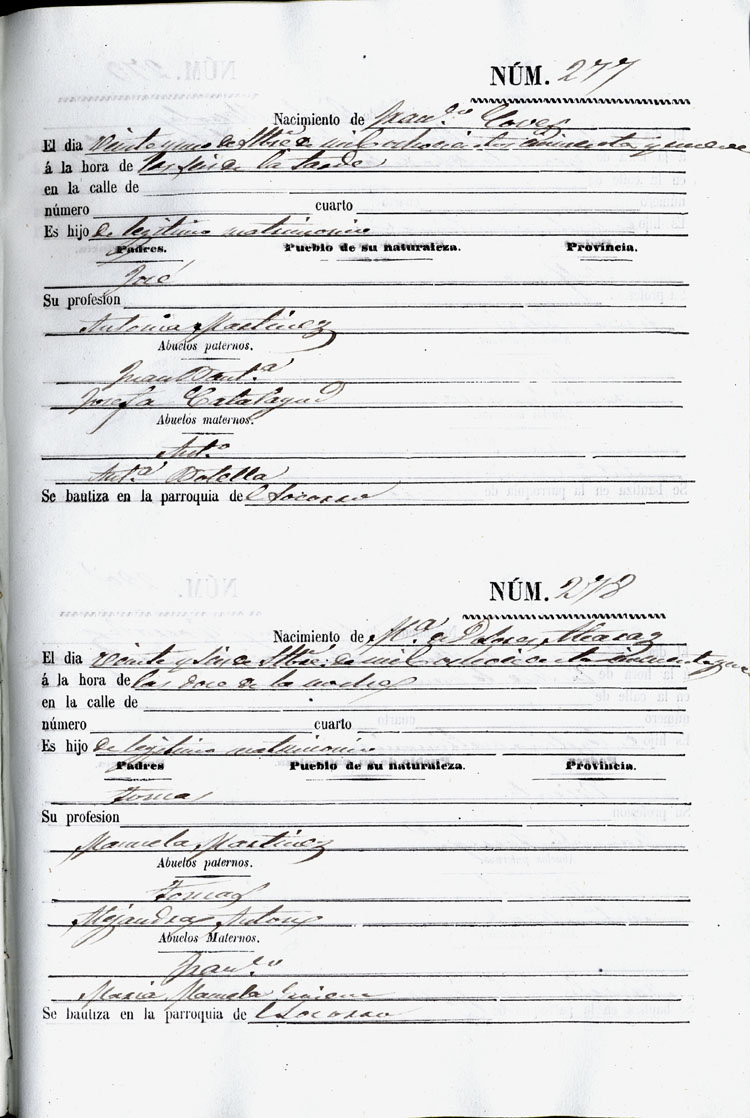 NÚM. 277
Nacimiento de Fran.co Cover
El dia veinte y uno de Stbre de mil ochocientos cincuenta y nueve
á la hora de las seis de la tarde
en la calle de
número cuarto
Es hijo de legitimo matrimonio
Padres. Pueblo de su naturaleza. Provincia.
José
Su profesion
Antonia Martinez
Abuelos paternos.
Juan Baut.a
Josefa Calatayud
Abuelos maternos.
Ant.o
Ant.a Botella
Se bautiza en la parroquia de l Socorro
NÚM. 278
Nacimiento de M.a de Dolores
El dia veinte y seis de Stbre: de mil ochocientos cincuenta y
á la hora de las doce de la noche
en la calle de
número cuarto
Es hijo de legitimo matrimonio
Padres Pueblo de su naturaleza. Provincia.
Tomas
Su profesion
Manuela Martinez
Abuelos paternos.
Tomas
Alejandra Anton
Abuelos Maternos.
Fran.co
Maria Manuela
Se bautiza en la parroquia de l Socorro